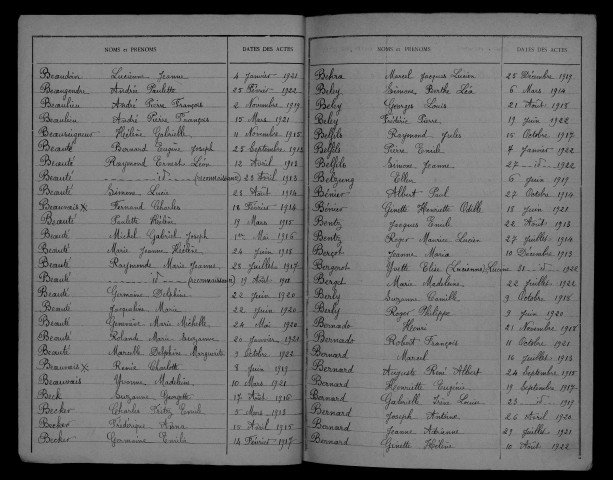 NOMS et PRÉNOMS DATES DES ACTES
Beaudoin Lucienne Jeanne 4 Janvier 1921
Beaugendre André Paulette 25 Février 1922
Beaulieu André Pierre François 2 Novembre 1919
Beaulieu André Pierre François 15 Mars 1921
Beauseigneur Hélène Gabrielle 11 Novembre 1915
Beauté Bernard Eugène Joseph 25 Septembre 1913
Beauté Raymond Ernest Léon 12 Avril 1913
Beauté - id - (reconnaissance) 23 Avril 1913
Beauté Simone Lucie 28 Août 1914
Beauvais X Fernand Charles 18 Février 1914
Beauté Paulette Hélène 19 Mars 1915
Beauté Michel Gabriel Joseph 1er Mai 1916
Beauté Marie Jeanne Hélène 24 Juin 1918
Beauté Raymonde Marie Jeanne 28 Juillet 1917
Beauté - id - (reconnaissance) 19 Août 1918
Beauté Germaine Delphine 22 Juin 1920
Beauté Jacqueline Marie 22 Juin 1920
Beauté Geneviève Marie Michelle 24 Mai 1920
Beauté Roland Marie Suzanne 20 Janvier 1921
Beauté Marcelle Delphine Marguerite 9 Octobre 1922
Beauvais X Renée Charlotte 8 Juin 1919
Beauvais Yvonne Madeleine 10 Mars 1921
Beck Suzanne Georgette 17 Août 1916
Becker Charles Emile 5 Mars 1913
Becker Frédérique Anna 15 Avril 1915
Becker Germaine Emilie 14 Février 1917
NOMS et PRÉNOMS DATES DES ACTES
Behra Marcel Jacques Lucien 25 Décembre 1919
Beley Simone Berthe Léa 6 Mars 1914
Beley Georges Louis 21 Août 1918
Beley Frédéric Pierre 19 Juin 1922
Belfils Raymond Jules 15 Octobre 1917
Belfils Pierre Emile 7 Janvier 1922
Belfils Simone Jeanne 27 - id - 1922
Ellen 6 Juin 1919
Bénier Albert Paul 27 Octobre 1914
Bénier Ginette Henriette Odille 18 Juin 1921
Bentz Jacques Emile 22 Août 1913
Bentz Roger Maurice Lucien 27 Juillet 1914
Berçot Jeanne Maria 10 Décembre 1913
Bergerot Yvette Elise (Lucienne) 31 - id - 1922
Bergot Marie Madeleine 22 Juillet 1922
Berly Suzanne Camille 9 Octobre 1918
Berly Roger Philippe 9 Juin 1920
Bernado Henri 21 Novembre 1918
Bernado Robert François 11 Octobre 1921
Bernard Marcel 16 Juillet 1913
Bernard Auguste René Albert 24 Septembre 1915
Bernard Henriette Eugénie 19 Septembre 1917
Bernard Gabrielle Irène Louise 23 - id - 1919
Bernard Joseph Antoine 26 Avril 1920
Bernard Jeanne Adrienne 29 Juillet 1921
Bernard Ginette Hélène 10 Août 1922